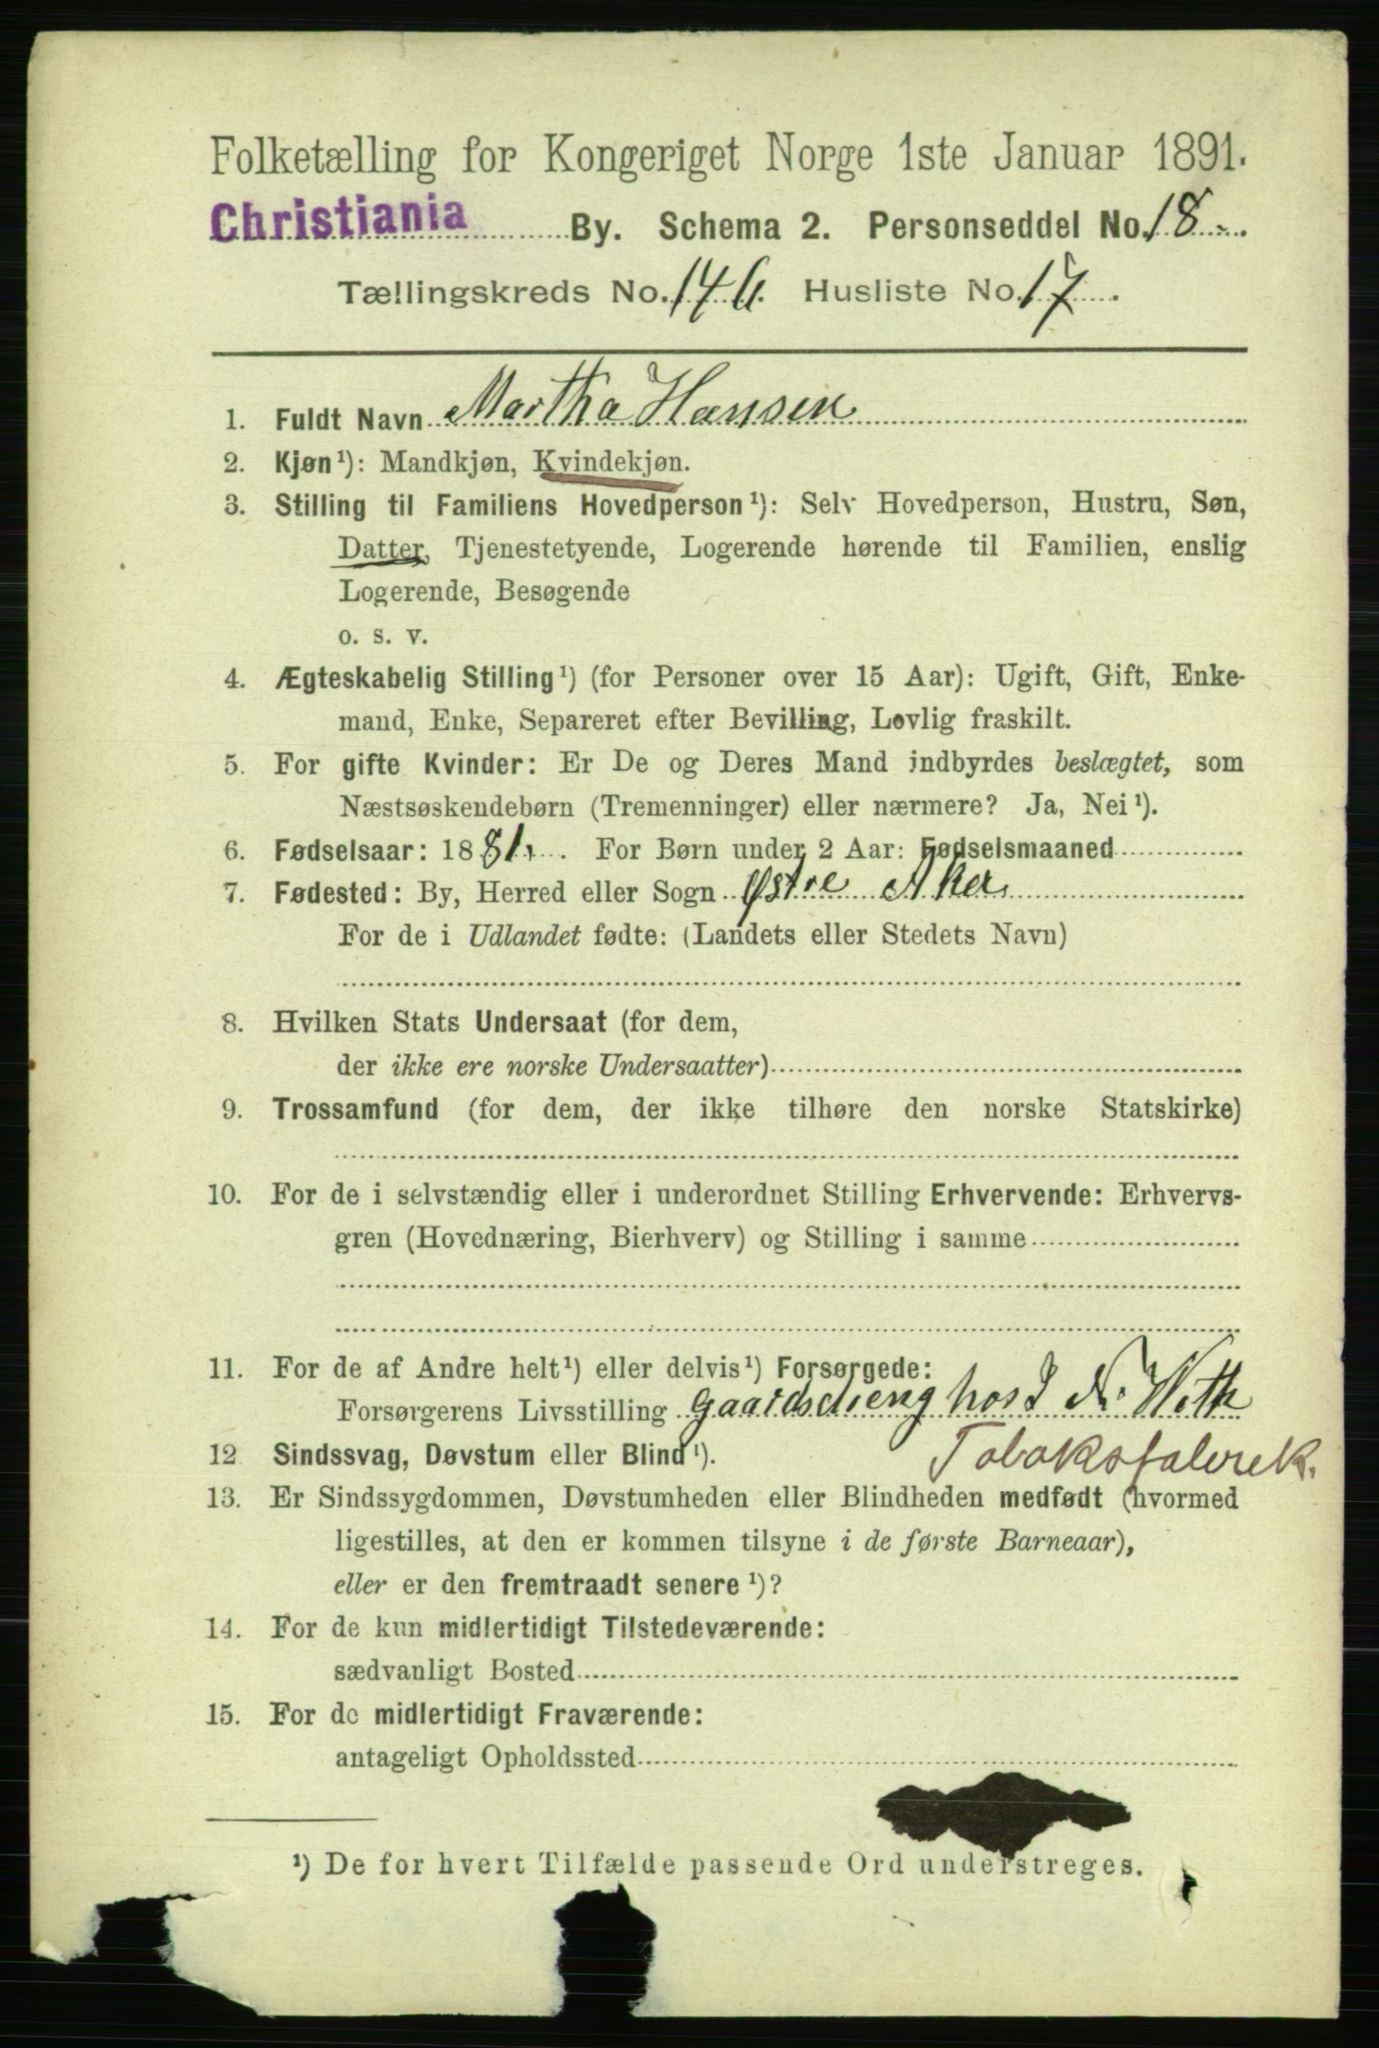 Folketælling for Kongeriget Norge 1ste Januar 1891.
Christiania By. Schema 2. Personseddel No. 18.
Tællingskreds No. 146. Husliste No. 17.
1. Fuldt Navn Martha Hansen
2. Kjøn¹): Mandkjøn, Kvindekjøn.
3. Stilling til Familiens Hovedperson¹): Selv Hovedperson, Hustru, Søn,
Datter, Tjenestetyende, Logerende hørende til Familien, enslig
Logerende, Besøgende
o. s. v.
4. Ægteskabelig Stilling¹) (for Personer over 15 Aar): Ugift, Gift, Enke-
mand, Enke, Separeret efter Bevilling, Lovlig fraskilt.
5. For gifte Kvinder: Er De og Deres Mand indbyrdes beslægtet, som
Næstsøskendebørn (Tremenninger) eller nærmere? Ja, Nei¹).
6. Fødselsaar: 1881. For Børn under 2 Aar: Fødselsmaaned
7. Fødested: By, Herred eller Sogn Østre Aker
For de i Udlandet fødte: (Landets eller Stedets Navn)
8. Hvilken Stats Undersaat (for dem,
der ikke ere norske Undersaatter)
9. Trossamfund (for dem, der ikke tilhøre den norske Statskirke)
10. For de i selvstændig eller i underordnet Stilling Erhvervende: Erhvervs-
gren (Hovednæring, Bierhverv) og Stilling i samme
11. For de af Andre helt¹) eller delvis¹) Forsørgede:
Forsørgerens Livsstilling Gaardsdreng hos
12 Sindssvag, Døvstum eller Blind¹). Tobaksfabrek.
13. Er Sindssygdommen, Døvstumheden eller Blindheden medfødt (hvormed
ligestilles, at den er kommen tilsyne i de første Barneaar),
eller er den fremtraadt senere¹)?
14. For de kun midlertidigt Tilstedeværende:
sædvanligt Bosted
15. For de midlertidigt Fraværende:
antageligt Opholdssted
¹) De for hvert Tilfælde passende Ord understreges.